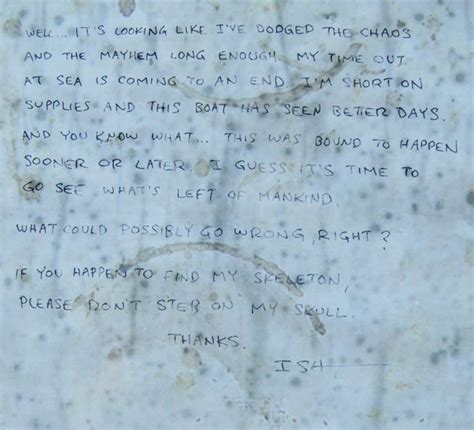 WELL... IT'S LOOKING LIKE I'VE DODGED THE CHAOS
AND THE MAYHEM LONG ENOUGH. MY TIME OUT
AT SEA IS COMING TO AN END. I'M SHORT ON
SUPPLIES AND THIS BOAT HAS SEEN BETTER DAYS.
AND YOU KNOW WHAT... THIS WAS BOUND TO HAPPEN
SOONER OR LATER. I GUESS IT'S TIME TO
GO SEE WHAT'S LEFT OF MANKIND.
WHAT COULD POSSIBLY GO WRONG, RIGHT?
IF YOU HAPPEN TO FIND MY SKELETON,
PLEASE DON'T STEP ON MY SKULL.
THANKS.
ISH